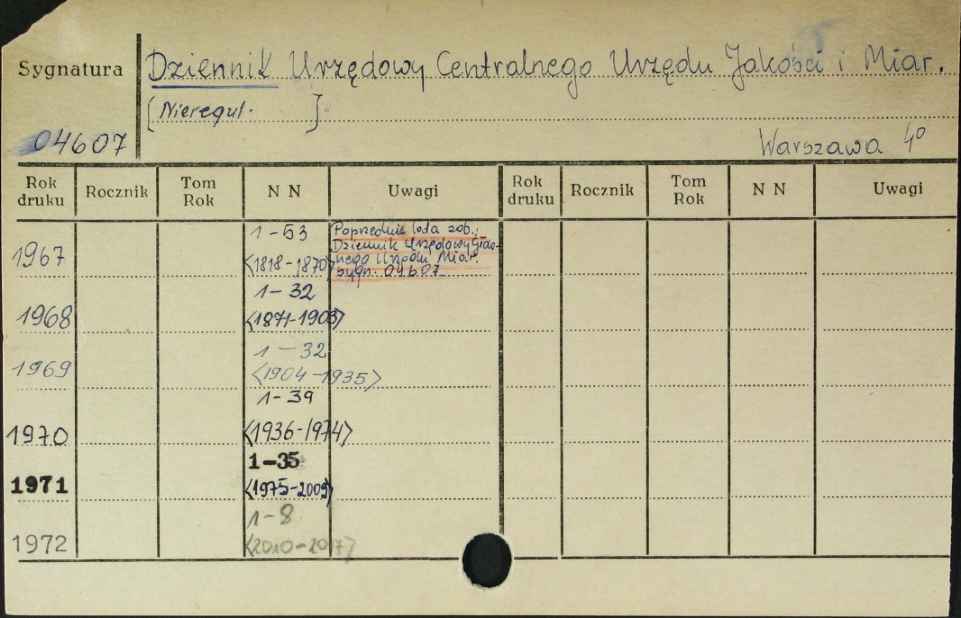 Sygnatura
Dziennik Urzędowy Centralnego Urzędu Jakości i Miar.
[Nieregul. ]
04607
Warszawa 4º
Rok druku Rocznik Tom Rok N N Uwagi Rok druku Rocznik Tom Rok N N Uwagi
1967 1-53 <1818-1870>
Poprzednie lata zob.:
Dziennik Urzędowy Głów-
nego Urzędu Miar.
sygn. 04607
1968 1-32 <1871-1903>
1969 1-32 <1904-1935>
1970 1-39 <1936-1974>
1971 1-35 <1975-2009>
1972 1-8 <2010-2017>